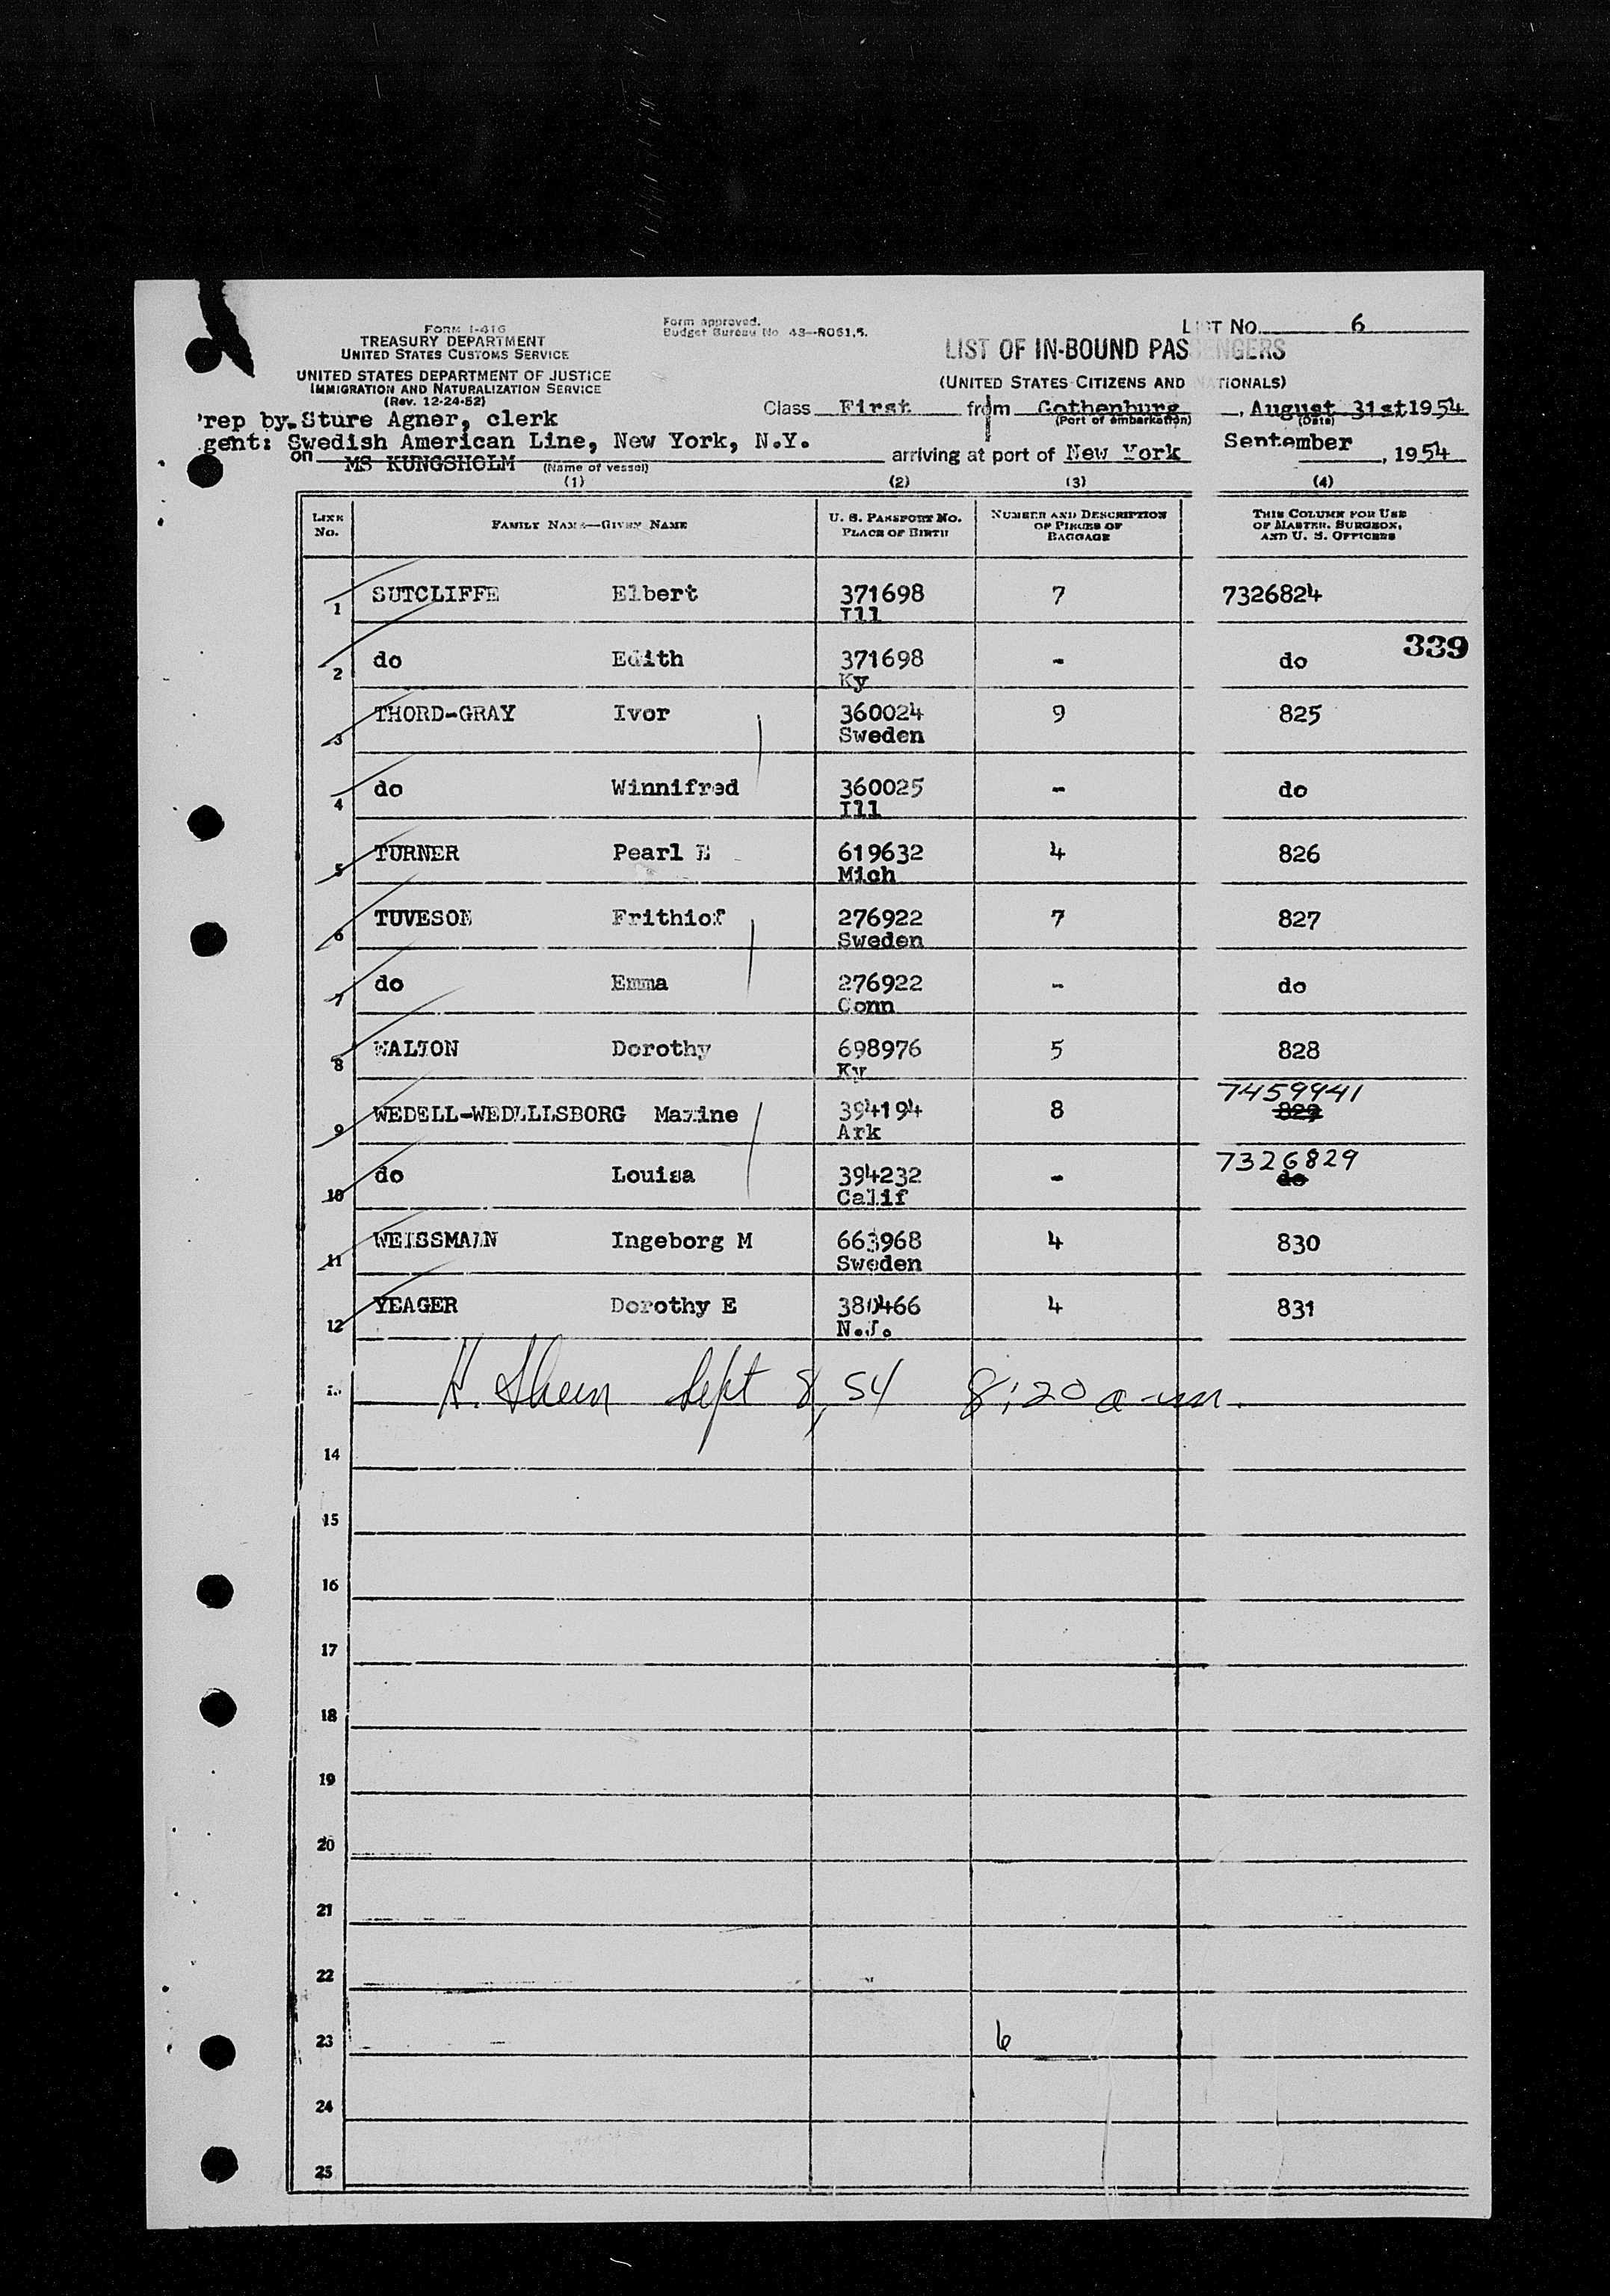 FORM I-416
TREASURY DEPARTMENT
UNITED STATES CUSTOMS SERVICE
UNITED STATES DEPARTMENT OF JUSTICE
IMMIGRATION AND NATURALIZATION SERVICE
(Rev. 12-24-52)
Form approved.
Budget Bureau No. 43--R061.5.
LIST No. 6
LIST OF IN-BOUND PASSENGERS
(UNITED STATES CITIZENS AND NATIONALS)
'rep by. Sture Agner, clerk
Class First from Gothenburg, August 31st 1954
(Port of embarkation) (Date)
gent: Swedish American Line, New York, N.Y.
on MS KUNGSHOLM arriving at port of New York September , 1954
(Name of vessel)
(1) (2) (3) (4)
LINE No. FAMILY NAME—GIVEN NAME U. S. PASSPORT NO. PLACE OF BIRTH NUMBER AND DESCRIPTION OF PIECES OF BAGGAGE THIS COLUMN FOR USE OF MASTER, SURGEON, AND U. S. OFFICERS
1 SUTCLIFFE Elbert 371698 7 7326824
Ill
339
2 do Edith 371698 - do
Ky
3 THORD-GRAY Ivor 360024 9 825
Sweden
4 do Winnifred 360025 - do
Ill
5 TURNER Pearl E 619632 4 826
Mich
6 TUVESON Frithiof 276922 7 827
Sweden
7 do Emma 276922 - do
Conn
8 WALTON Dorothy 698976 5 828
Ky
7459941
9 WEDELL-WEDELLSBORG Maxine 394194 8 829
Ark
7326829
10 do Louisa 394232 - do
Calif
11 WEISSMANN Ingeborg M 663968 4 830
Sweden
12 YEAGER Dorothy E 380466 4 831
N.J.
H. Shein Sept 8, 54 8:20 a-m.
13
14
15
16
17
18
19
20
21
22
23 6
24
25